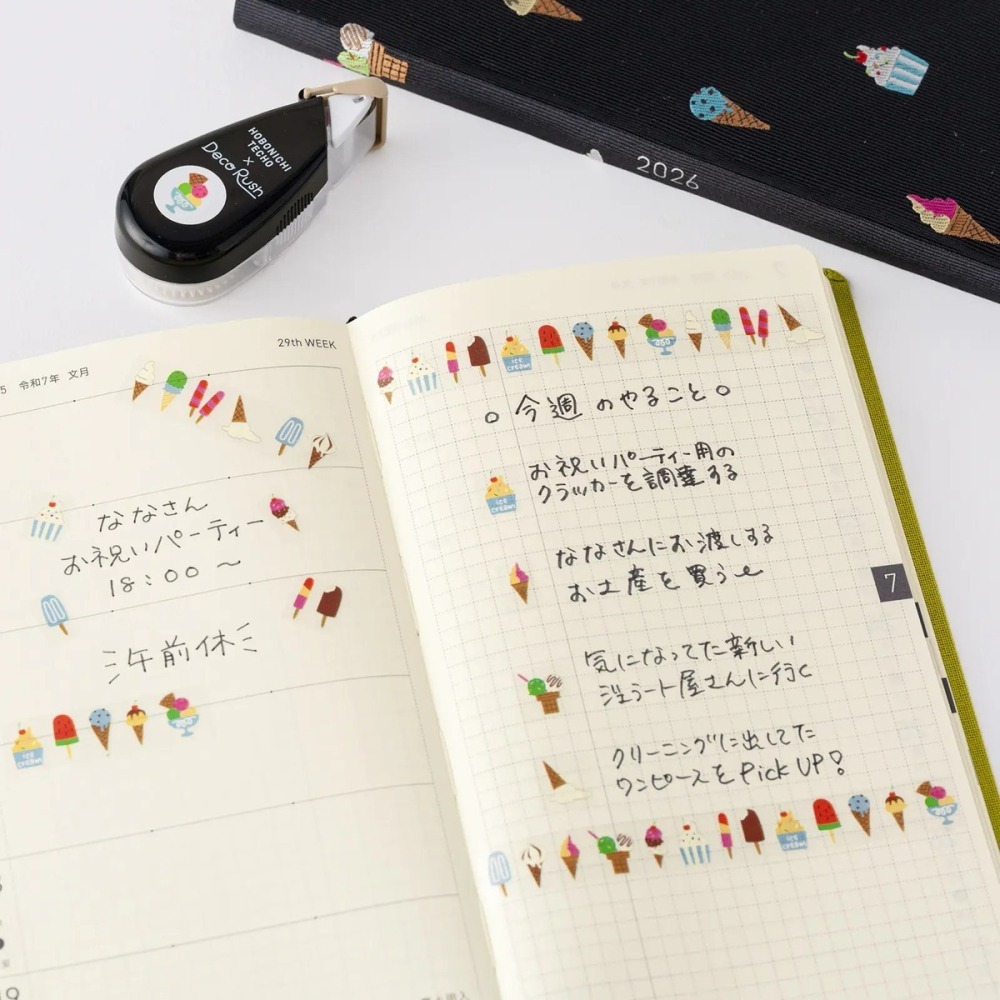 HOBONICHI
TECHO
×
Deco Rush
2026
5 令和7年 文月
29th WEEK
ななさん
お祝いパーティー
18:00～
午前休
19
。今週のやること。
お祝いパーティー用の
クラッカーを調達する
ななさんにお渡しする
お土産を買う
気になってた新しい
ジェラート屋さんに行く
クリーニングに出してた
ワンピースをPick UP!
7
ice
cream
ice
cream
ice
cream
ice
cream